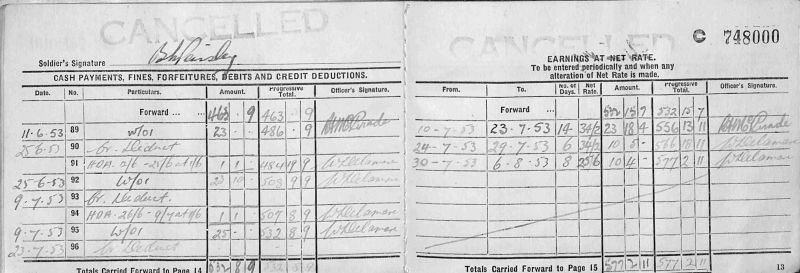 CANCELLED
CANCELLED
C 748000
Soldier's Signature
CASH PAYMENTS, FINES, FORFEITURES, DEBITS AND CREDIT DEDUCTIONS.
Date. No. Particulars. Amount. Progressive Total. Officer's Signature.
Forward ... ... 463 9 463 - 9
11-6-53 89 W/01 23 - - 486 - 9
25-6-53 90 Cr. Deduct
91 HOA 2/6 - 25/6 at 1/6 1 1 - 484 19 9
25-6-53 92 W/01 23 10 - 508 9 9
9-7-53 93 Cr. Deduct.
94 HOA - 26/6 - 9/7 at 1/6 1 1 - 507 8 9
9-7-53 95 W/01 25 - - 532 8 9
23-7-53 96 Cr Deduct
Totals Carried Forward to Page 14 532 8 9 532 8 9
EARNINGS AT NET RATE.
To be entered periodically and when any
alteration of Net Rate is made.
From. To. No. of Days. Net Rate. Amount. Progressive Total. Officer's Signature.
Forward ... 532 15 7 532 15 7
10-7-53 23-7-53 14 34/2 23 18 4 556 13 11
24-7-53 29-7-53 6 34/2 10 5 - 566 18 11
30-7-53 6-8-53 8 25/6 10 4 - 577 2 11
Totals Carried Forward to Page 15 577 2 11 577 2 11
13